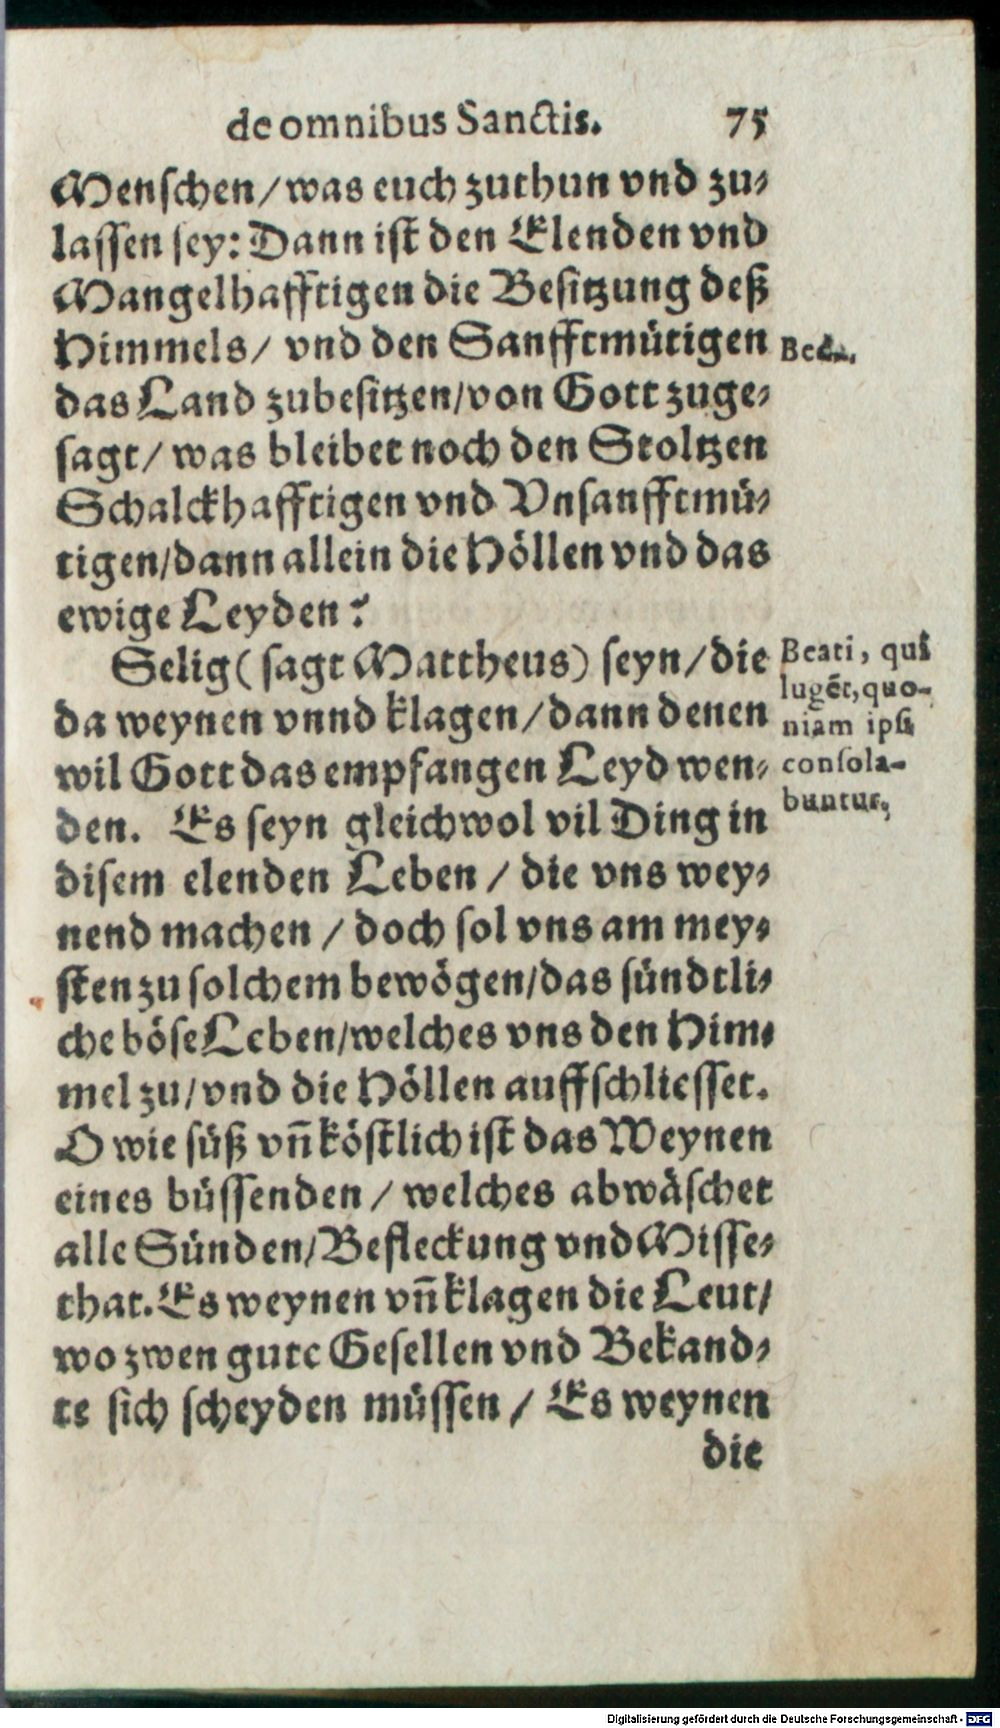 de omnibus Sanctis. 75
Menschen/was euch zuthun vnd zu-
lassen sey: Dann ist den Elenden vnd
Mangelhafftigen die Besitzung deß
Himmels/ vnd den Sanfftmütigen
Beda.
das Land zubesitzen/von Gott zuge-
sagt/ was bleibet noch den Stoltzen
Schalckhafftigen vnd Vnsanfftmü-
tigen/dann allein die Höllen vnd das
ewige Leyden?
Selig (sagt Mattheus) seyn/die
da weynen vnnd klagen/dann denen
wil Gott das empfangen Leyd wen-
den. Es seyn gleichwol vil Ding in
disem elenden Leben / die vns wey-
nend machen / doch sol vns am mey-
sten zu solchem bewögen/das sündtli-
che böse Leben/welches vns den Him-
mel zu/vnd die Höllen auffschliesset.
O wie süß vñ köstlich ist das Weynen
eines büssenden / welches abwäschet
alle Sünden/Befleckung vnd Misse-
that. Es weynen vñ klagen die Leut/
wo zwen gute Gesellen vnd Bekand-
te sich scheyden müssen / Es weynen
die
Beati, qui
lugẽt, quo-
niam ipsi
consola-
buntur.
Digitalisierung gefördert durch die Deutsche Forschungsgemeinschaft - DFG